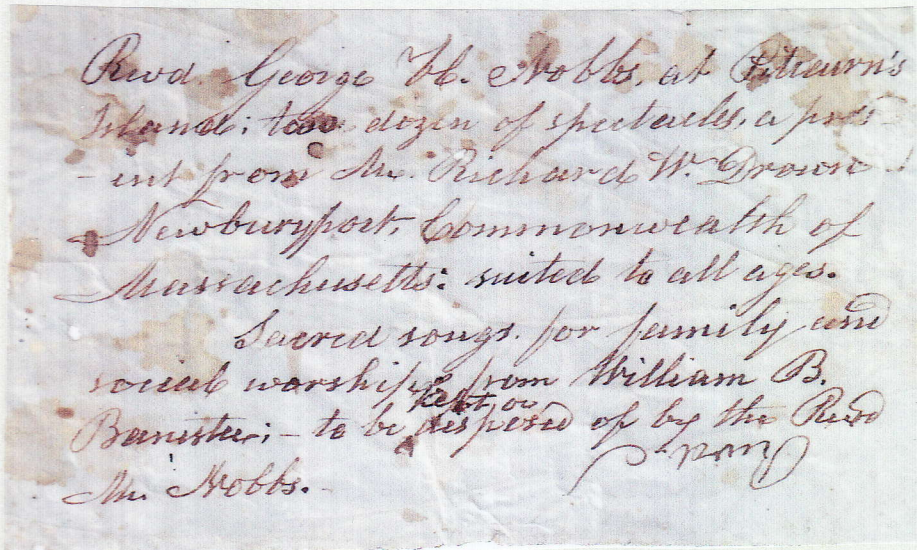 Revd. George H. Nobbs, at Pitcairn's
Island; two dozen of spectacles, a pres
- ent from Mr. Richard W. Drown
Newburyport, Commonwealth of
Massachusetts: suited to all ages.
Sacred songs for family and
social worship, from William B.
kept or
Banister; - to be disposed of by the Revd
Mr. Nobbs.